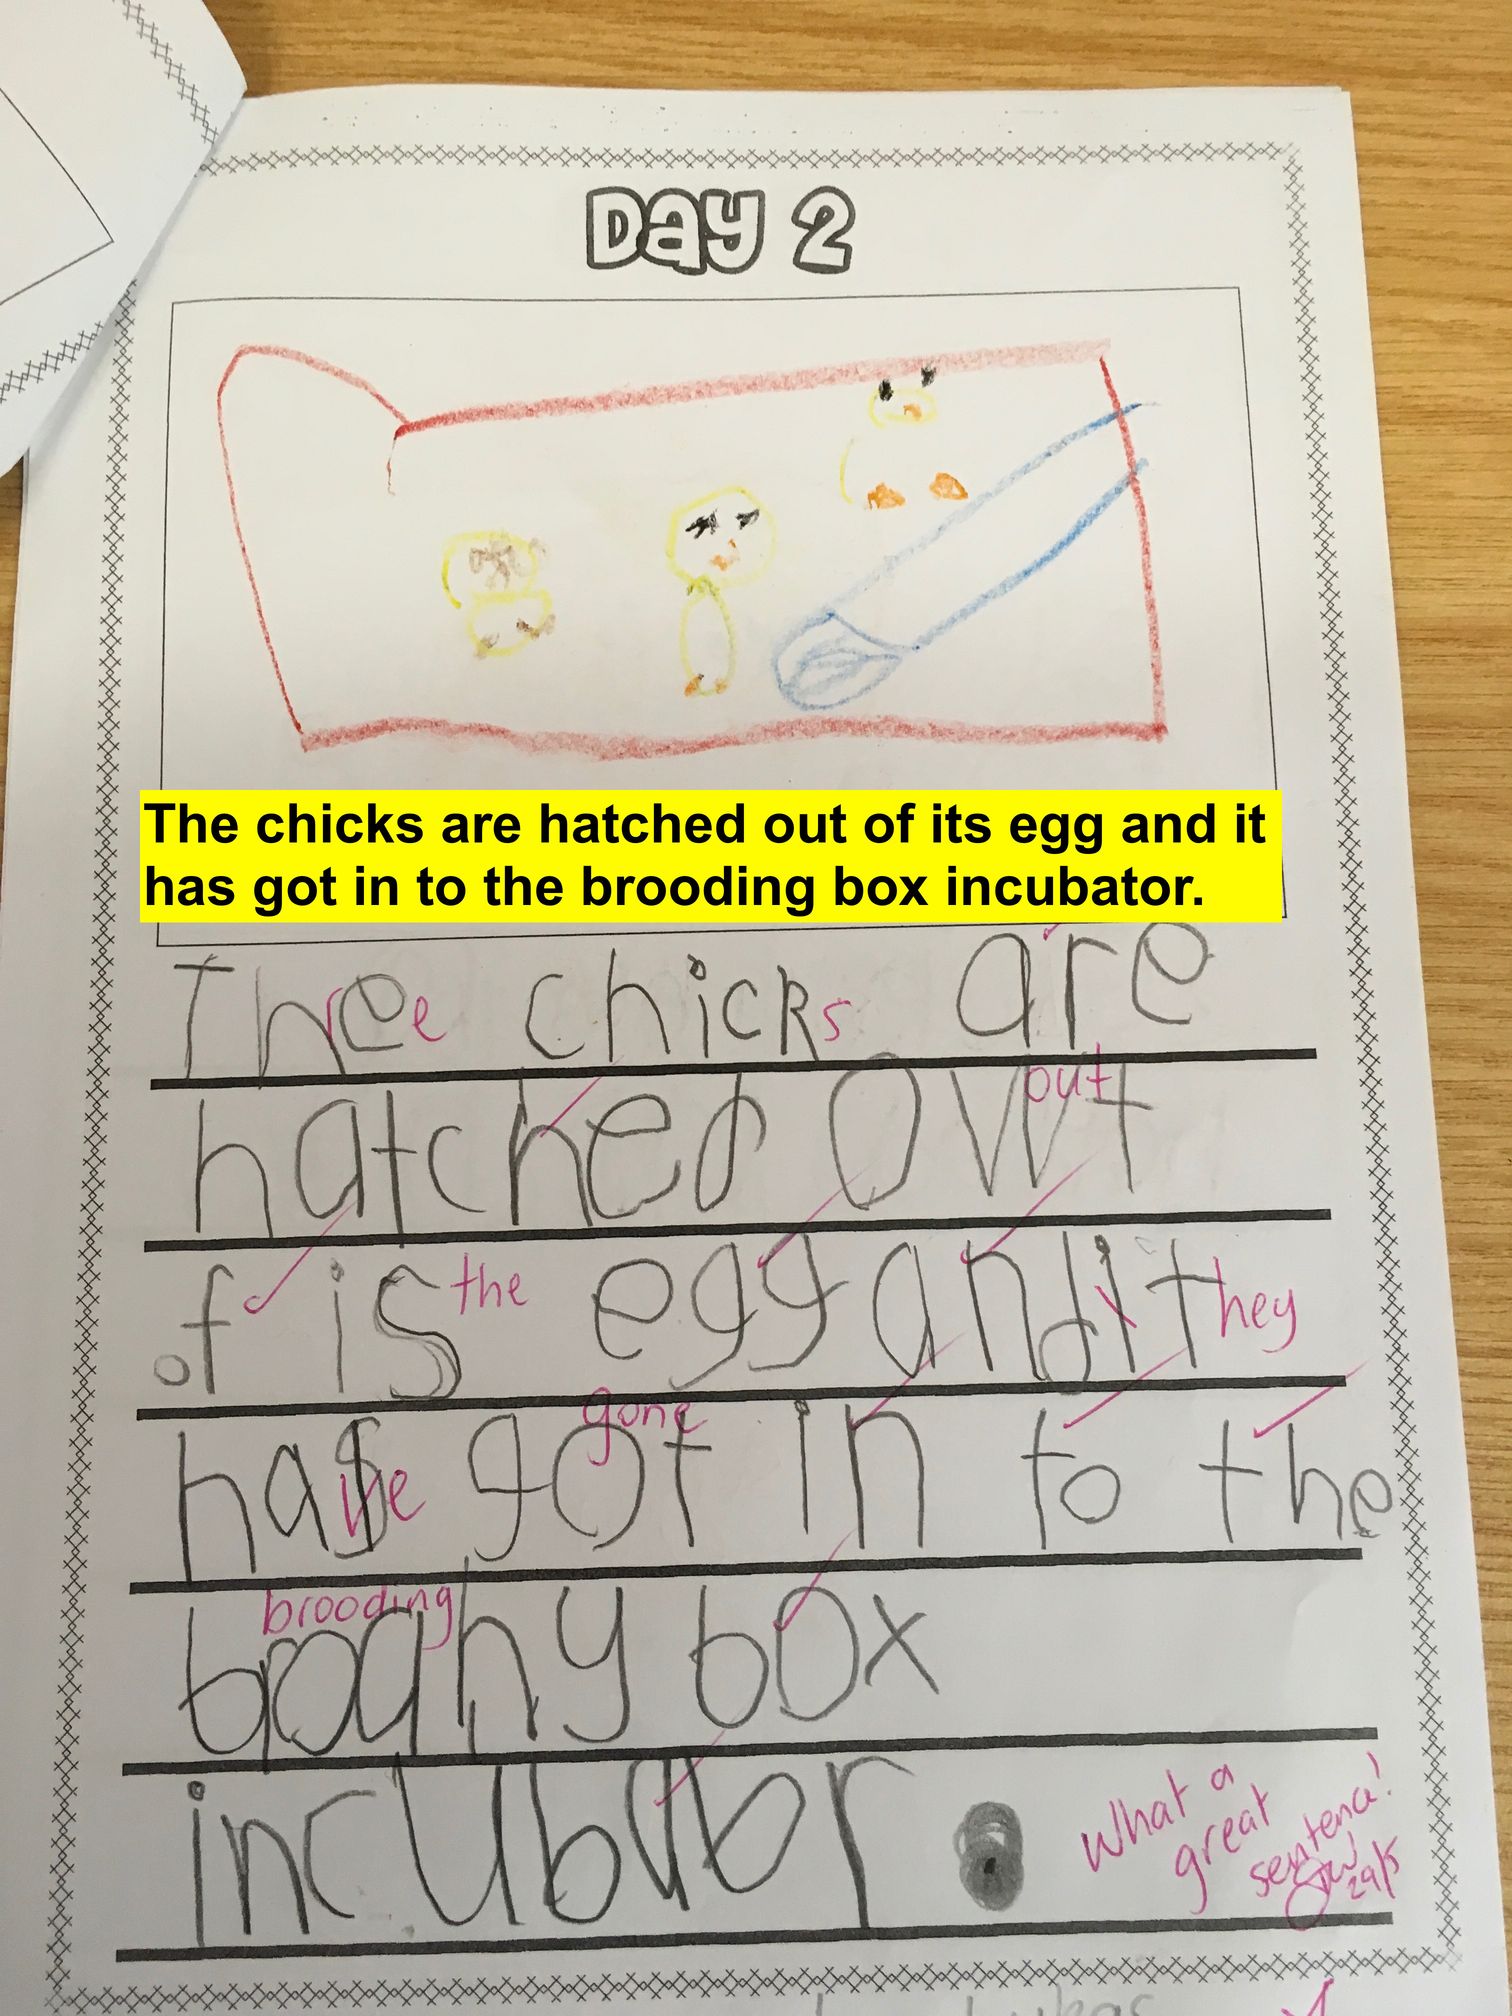 Day 2
The chicks are hatched out of its egg and it
has got in to the brooding box incubator.
Three chicks are
hatched owt
out
of is the egg and it they
has ve got in to the
gone
brooding
box
incubator.
What a
great
sentence!
29/5